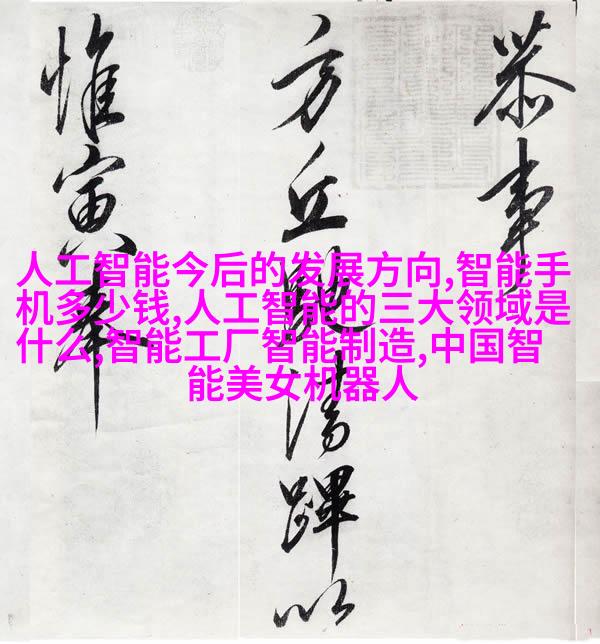 恭事
方丘清蹕以
惟寅奉
人工智能今后的发展方向,智能手
机多少钱,人工智能的三大领域是
什么,智能工厂智能制造,中国智
能美女机器人